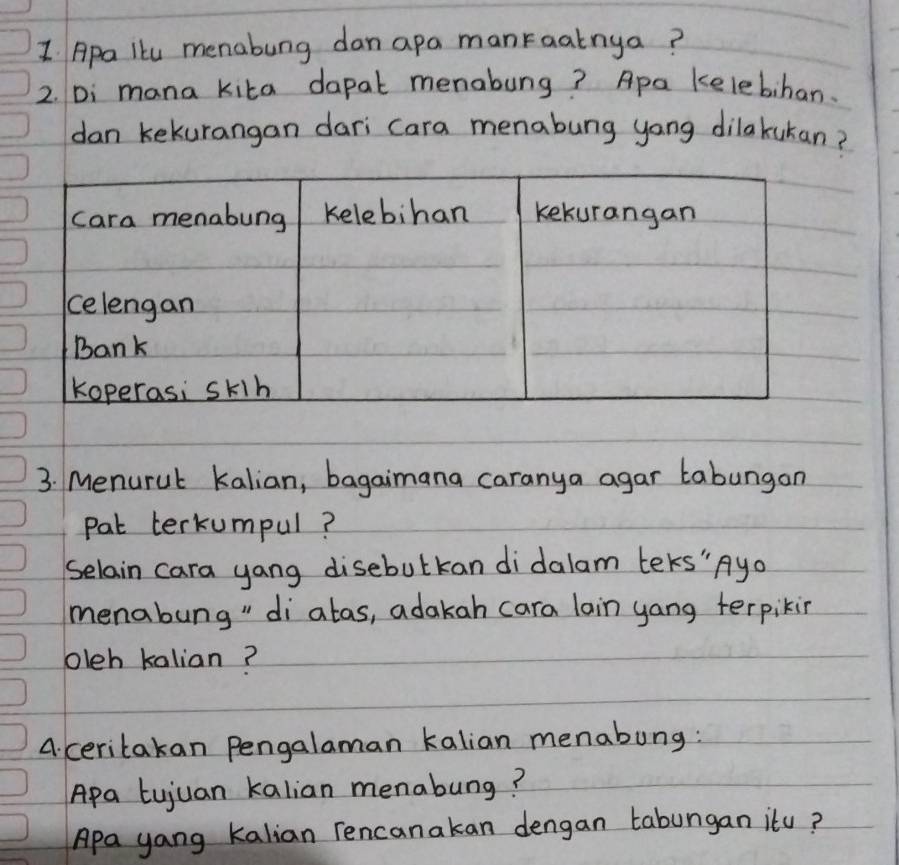 1. Apa itu menabung dan apa manfaatnya ?
2. Di mana kita dapat menabung ? Apa kelebihan.
dan kekurangan dari cara menabung yang dilakukan ?
cara menabung kelebihan kekurangan
celengan
Bank
koperasi sklh
3. Menurut kalian, bagaimana caranya agar tabungan
pat terkumpul ?
Selain cara yang disebutkan di dalam teks "Ayo
menabung" di atas, adakah cara lain yang terpikir
oleh kalian ?
4. ceritakan pengalaman kalian menabung :
Apa tujuan kalian menabung ?
Apa yang kalian rencanakan dengan tabungan itu ?